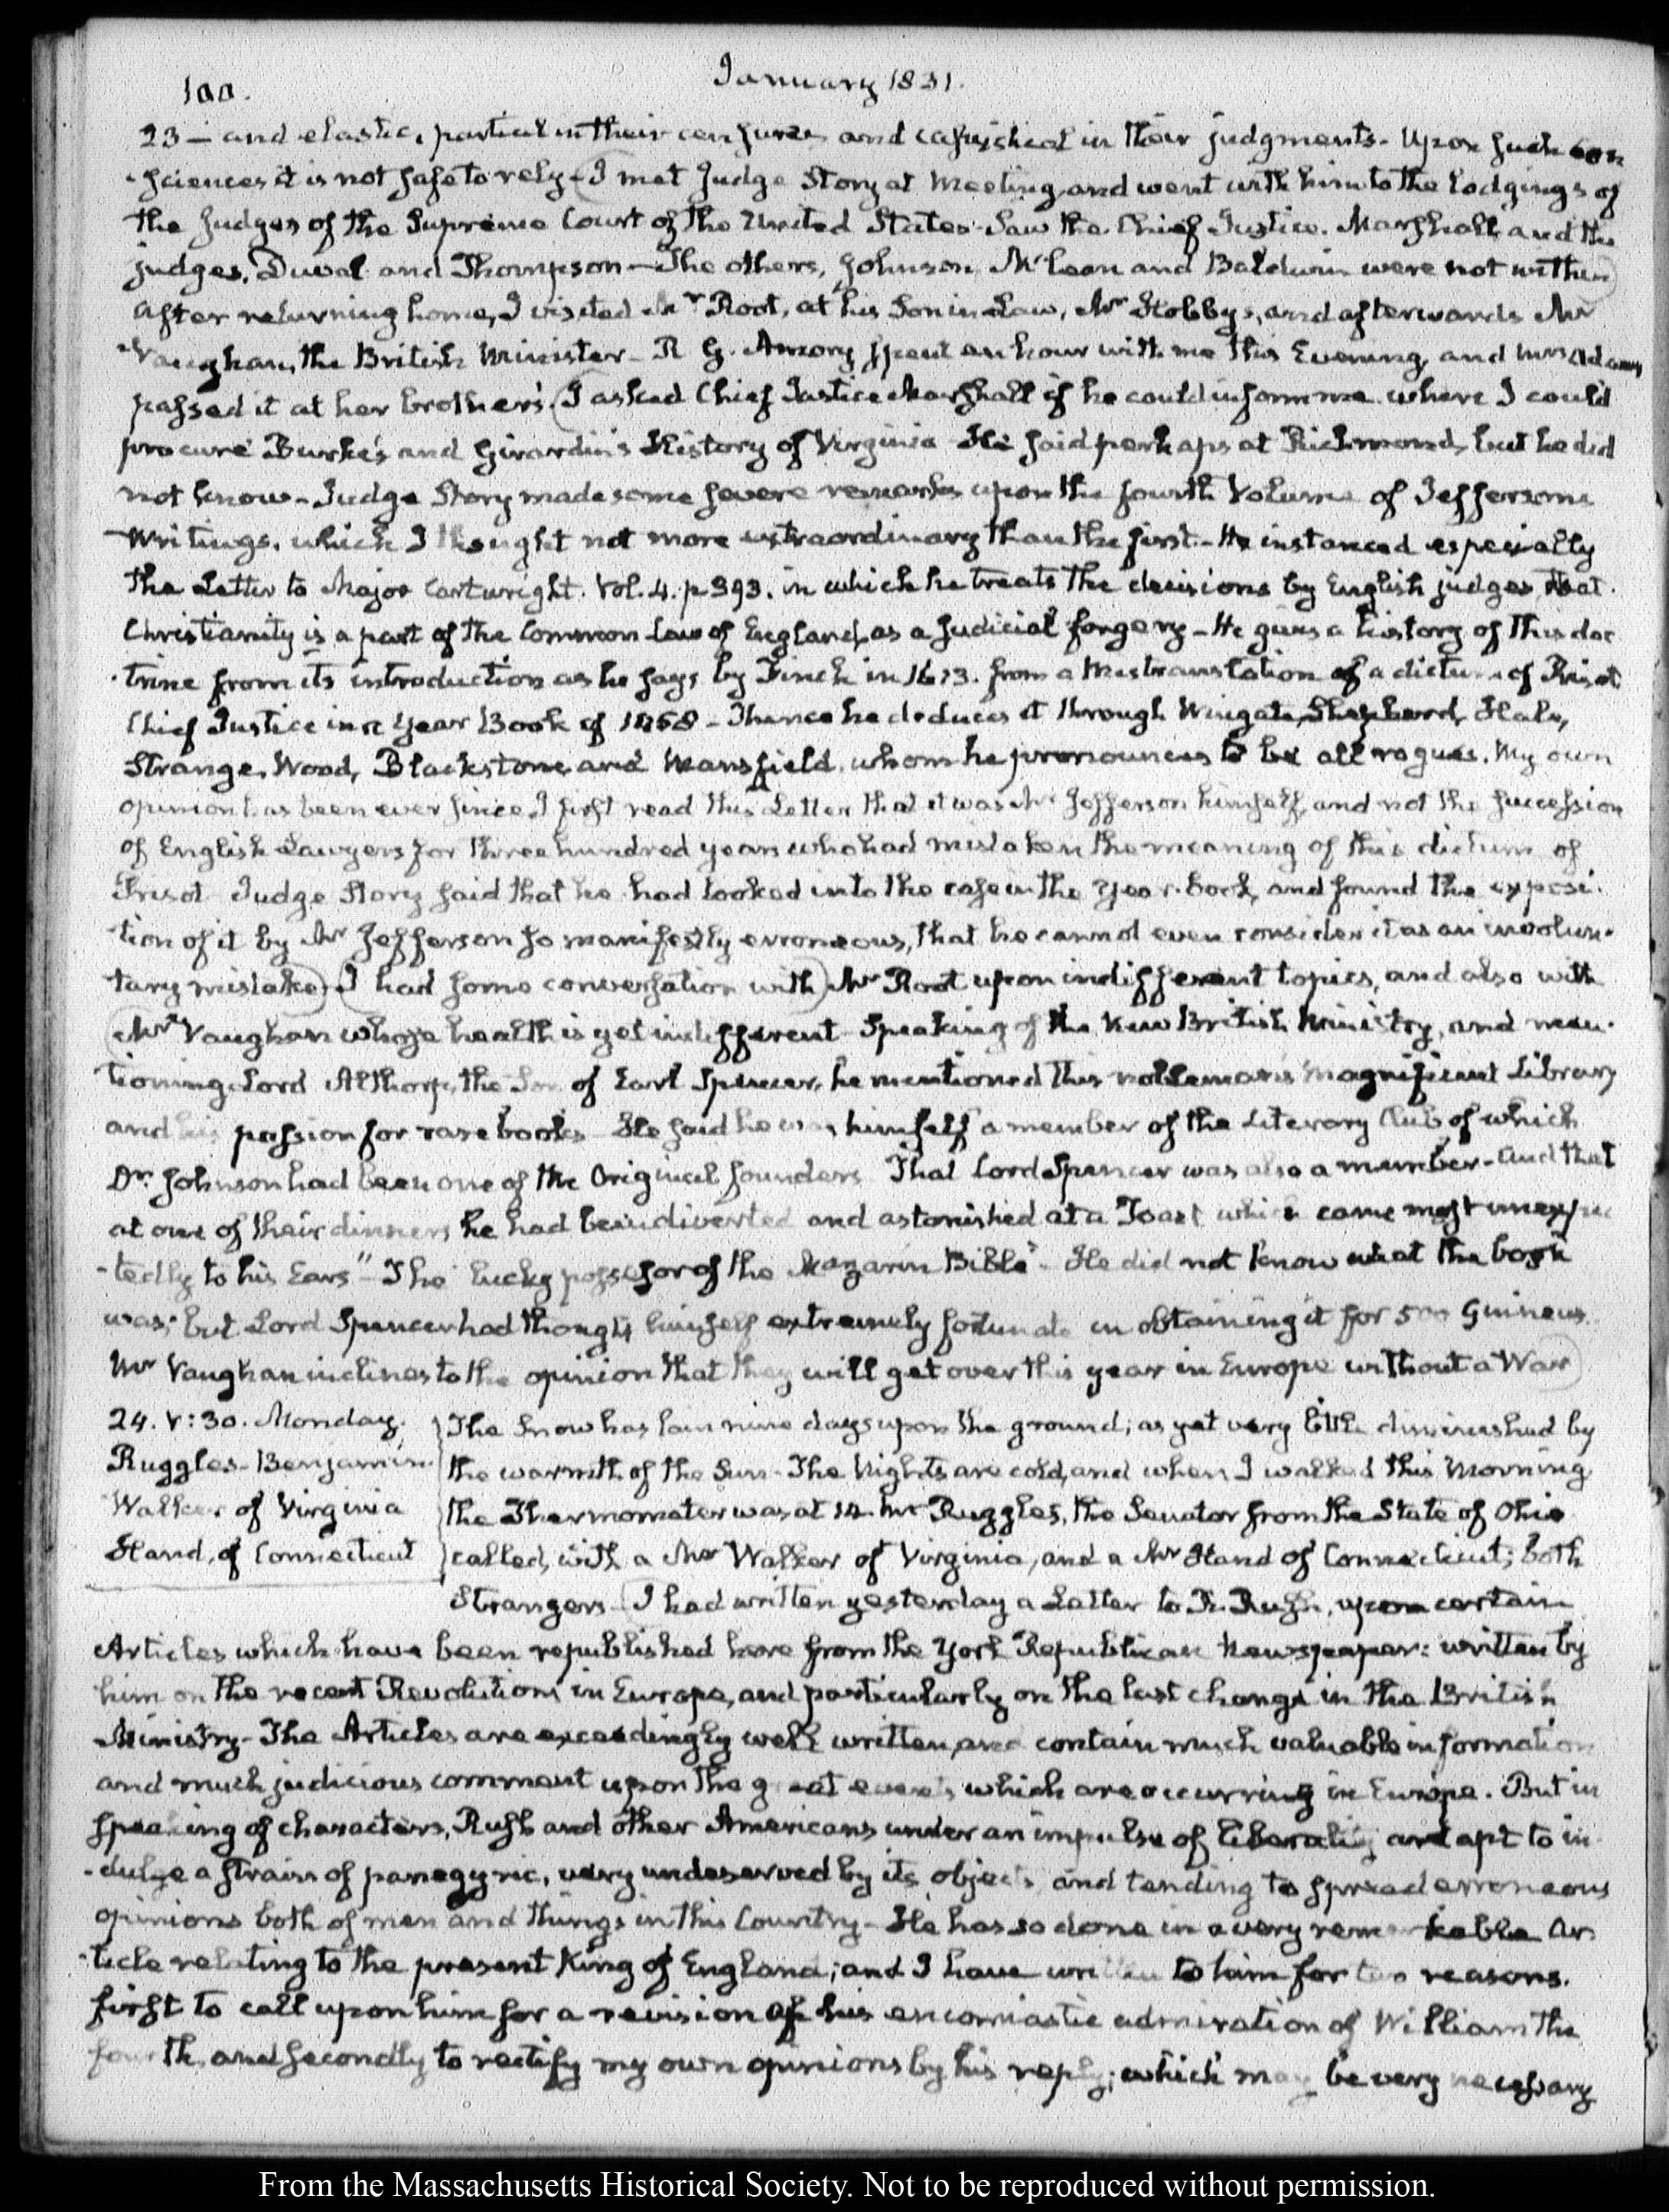 100.
January 1831.
23 — and elastic, partial in their censures and in their judgments. Upon such con
-sciences it is not safe to rely — I met Judge Story at Meeting and went with him to the lodgings of
the Judges of the Supreme Court of the United States. Saw the Chief Justice. Marshall and the
judges, Duval and Thompson — The others, Johnson, McLean and Baldwin were not within
After returning home, I visited Mr Root, at his Son in Law, Mr Hobby's, and afterwards Mr
Vaughan, the British Minister — R G. Amory spent an hour with me this Evening, and Mrs Adams
passed it at her brother's. I asked Chief Justice Marshall if he could inform me where I could
procure Burke's and Girardin's History of Virginia He said perhaps at Richmond, but he did
not know — Judge Story made some severe remarks upon the fourth Volume of Jeffersons
Writings, which I thought not more extraordinary than the first — He instanced especially
the Letter to Major Cartwright. Vol. 4. p 393. in which he treats the decisions by English judges, that
Christianity is a part of the Common Law of England, as a judicial forgery — He gives a history of this doc
-trine from its introduction as he says by Finch in 1613. from a mistranslation of a dictum of Prisot
Chief Justice in a Year Book of 1458 — Thence he deduces it through Wingate, Sheppard, Hale,
Strange, Wood, Blackstone, and Mansfield, whom he pronounces to be all rogues. My own
opinion has been ever since I first read this Letter that it was Mr Jefferson himself, and not the succession
of English Lawyers for three hundred years who had mistaken the meaning of this dictum of
Prisot Judge Story said that he had looked into the case in the Year-book, and found the exposi
-tion of it by Mr Jefferson so manifestly erroneous, that he cannot even consider it as an involun-
tary mistake) I had some conversation with) Mr Root upon indifferent topics, and also with
Mr Vaughan whose health is yet indifferent Speaking of the New British Ministry, and men-
tioning Lord Althorp, the Son of Earl Spencer, he mentioned this nobleman's magnificent Library
and his passion for rare books He said he was himself a member of the Literary Club of which
Dr. Johnson had been one of the Original founders That Lord Spencer was also a member — and that
at one of their dinners he had been diverted and astonished at a Toast which came most unexpec
-tedly to his Ears" — The lucky possessor of the Mazarin Bible" — He did not know what the book
was; but Lord Spencer had thought himself extremely fortunate in obtaining it for 500 Guineas.
Mr Vaughan inclines to the opinion that they will get over this year in Europe without a War
24. V: 30. Monday.
Ruggles — Benjamin
Walker of Virginia
Hand, of Connecticut
The Snow has lain nine days upon the ground; as yet very little diminished by
the warmth of the Sun — The Nights are cold, and when I walked this Morning
the Thermometer was at 14. Mr Ruggles, the Senator from the State of Ohio
called, with a Mr Walker of Virginia, and a Mr Hand of Connecticut; both
Strangers — I had written yesterday a Letter to R. Rush, upon certain
Articles which have been republished here from the York Republican Newspaper: written by
him on the recent Revolutions in Europe, and particularly on the last change in the British
Ministry — The Articles are exceedingly well written, and contain much valuable information
and much judicious comment upon the great events which are occurring in Europe. But in
speaking of characters, Rush and other Americans under an impulse of liberality are apt to in
-dulge a strain of panegyric, very undeserved by its objects, and tending to spread erroneous
opinions both of men and things in this Country — He has so done in a very remarkable Ar
-ticle relating to the present King of England; and I have written to him for two reasons.
first to call upon him for a revision of his encomiastic admiration of William the
fourth, and secondly to rectify my own opinions by his reply; which may be very necessary
From the Massachusetts Historical Society. Not to be reproduced without permission.